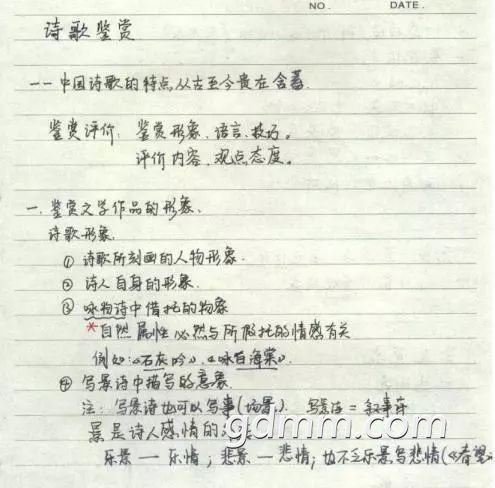 NO. DATE.
诗歌鉴赏
——中国诗歌的特点,从古至今贵在含蓄.
鉴赏评价: 鉴赏形象、语言、技巧。
评价内容、观点态度。
一、鉴赏文学作品的形象.
诗歌形象:
① 诗歌所刻画的人物形象.
② 诗人自身的形象.
③ 咏物诗中借托的物象
*自然属性必然与所假托的情感有关
例如:《石灰吟》、《咏白海棠》.
④ 写景诗中描写的意象.
注: 写景诗也可以写事(场景.) 写景诗=叙事诗
景是诗人感情的
乐景—乐情; 悲景—悲情; 也不乏乐景写悲情(《春望》
gdmm.com